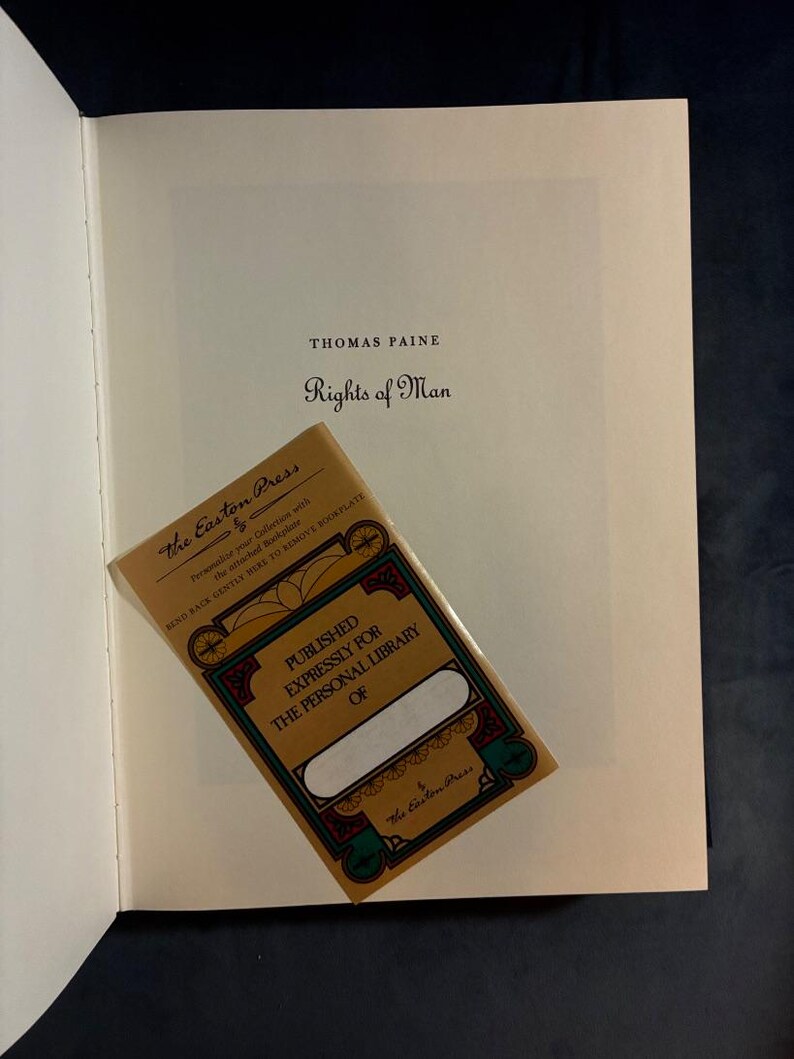 THOMAS PAINE
Rights of Man
The Easton Press
Personalize your Collection with
the attached Bookplate
BEND BACK GENTLY HERE TO REMOVE BOOKPLATE
PUBLISHED
EXPRESSLY FOR
THE PERSONAL LIBRARY
OF
The Easton Press